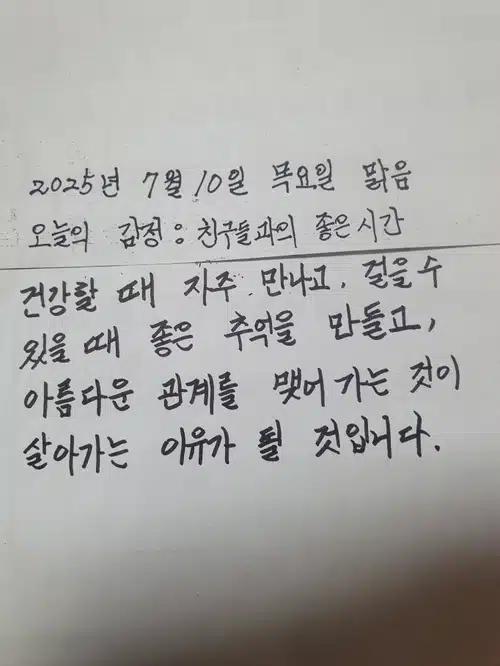 2025년 7월 10일 목요일 맑음
오늘의 감정: 친구들과의 좋은 시간
건강할 때 자주 만나고, 걸을 수
있을 때 좋은 추억을 만들고,
아름다운 관계를 맺어 가는 것이
살아가는 이유가 될 것입니다.